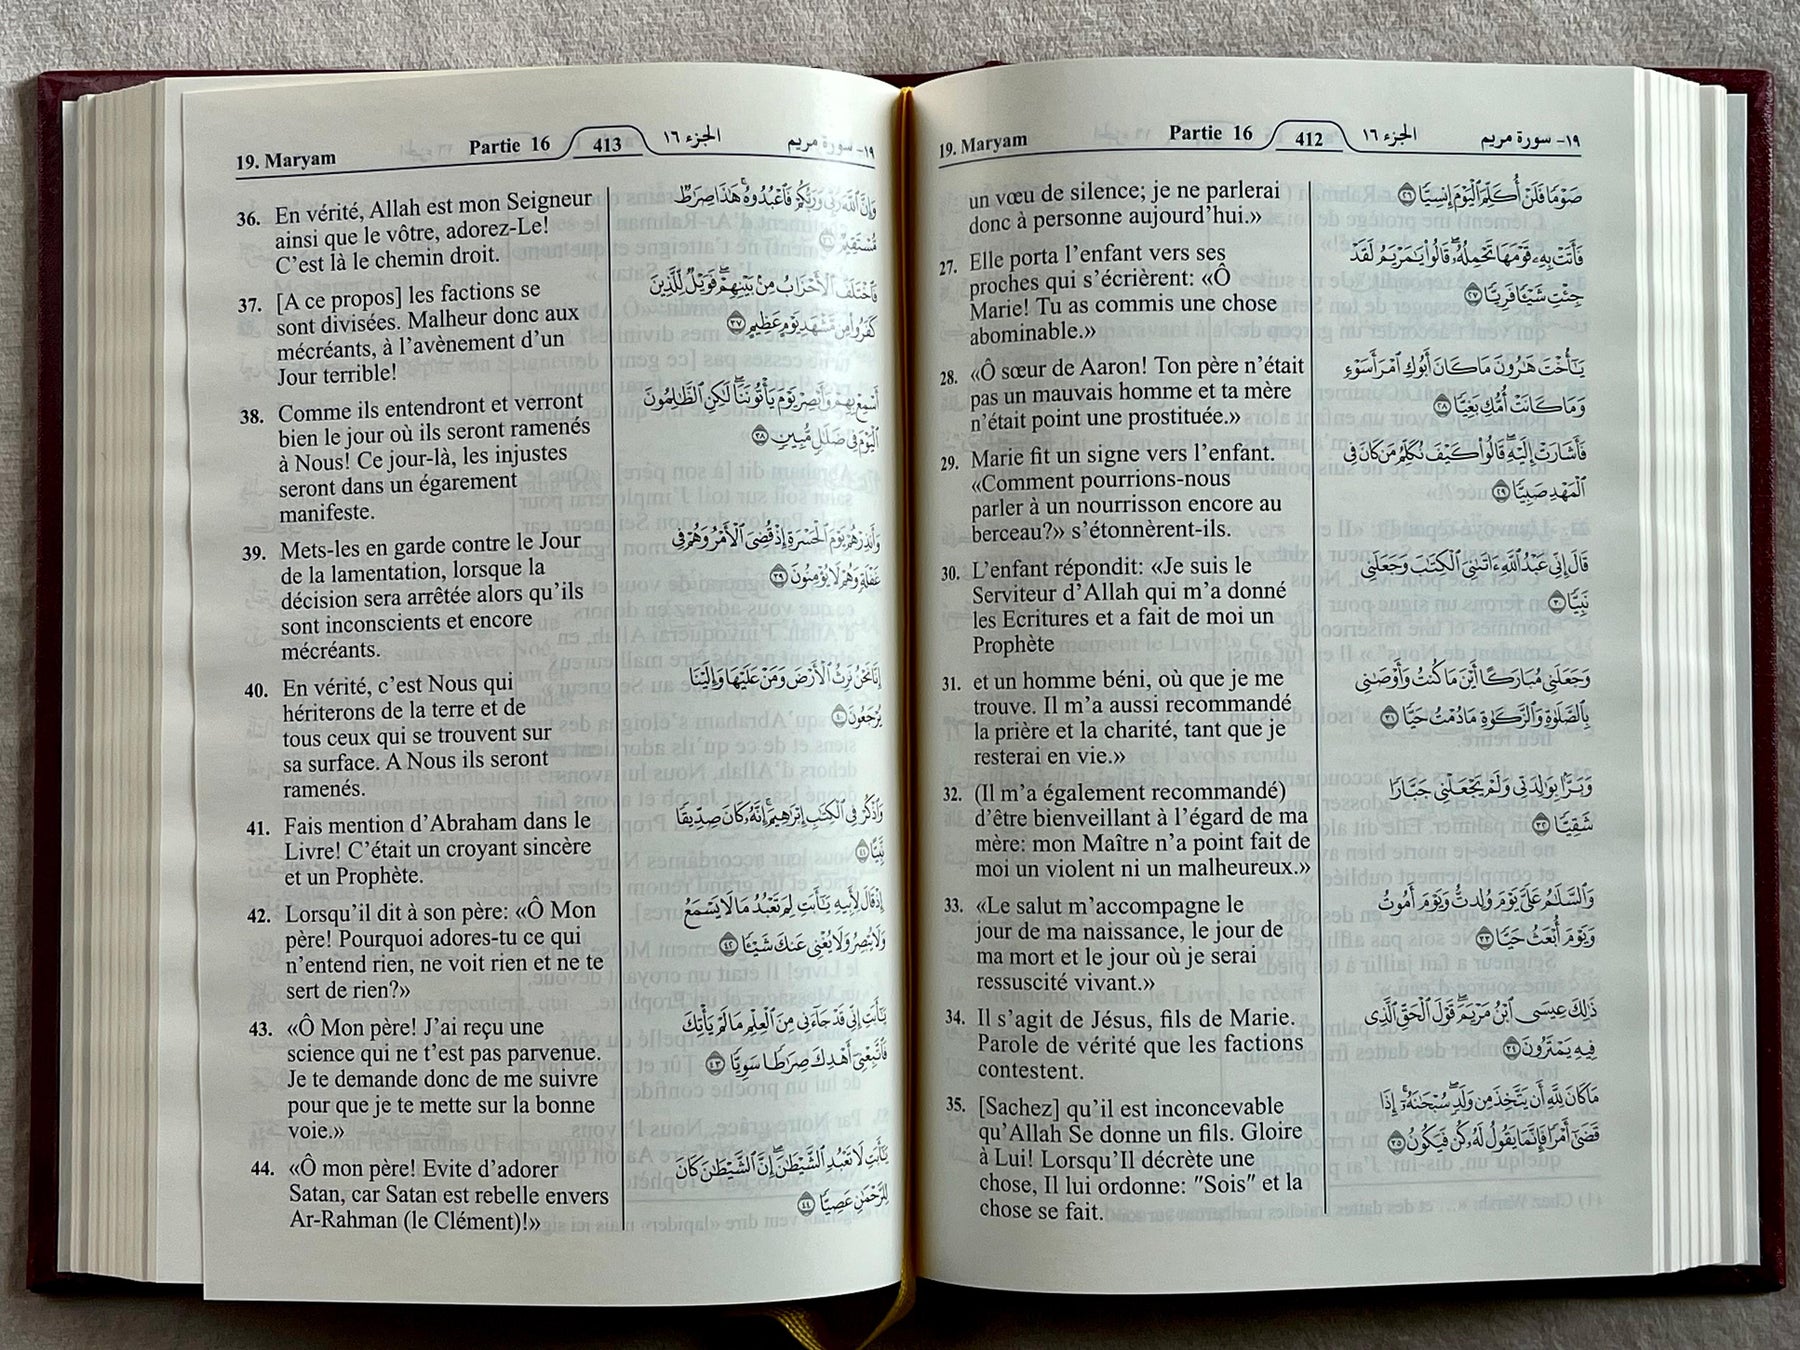 19. Maryam
Partie 16
412
الجزء ١٦
١٩- سورة مريم
un vœu de silence; je ne parlerai
donc à personne aujourd’hui.»
27. Elle porta l’enfant vers ses
proches qui s’écrièrent: «Ô
Marie! Tu as commis une chose
abominable.»
28. «Ô sœur de Aaron! Ton père n’était
pas un mauvais homme et ta mère
n’était point une prostituée.»
29. Marie fit un signe vers l’enfant.
«Comment pourrions-nous
parler à un nourrisson encore au
berceau?» s’étonnèrent-ils.
30. L’enfant répondit: «Je suis le
Serviteur d’Allah qui m’a donné
les Ecritures et a fait de moi un
Prophète
31. et un homme béni, où que je me
trouve. Il m’a aussi recommandé
la prière et la charité, tant que je
resterai en vie.»
32. (Il m’a également recommandé)
d’être bienveillant à l’égard de ma
mère: mon Maître n’a point fait de
moi un violent ni un malheureux.»
33. «Le salut m’accompagne le
jour de ma naissance, le jour de
ma mort et le jour où je serai
ressuscité vivant.»
34. Il s’agit de Jésus, fils de Marie.
Parole de vérité que les factions
contestent.
35. [Sachez] qu’il est inconcevable
qu’Allah Se donne un fils. Gloire
à Lui! Lorsqu’Il décrète une
chose, Il lui ordonne: "Sois" et la
chose se fait.
صَوْمًا فَلَنْ أُكَلِّمَ ٱلْيَوْمَ إِنسِيًّا ٢٦
فَأَتَتْ بِهِۦ قَوْمَهَا تَحْمِلُهُۥ ۖ قَالُوا۟ يَـٰمَرْيَمُ لَقَدْ
جِئْتِ شَيْـًٔا فَرِيًّا ٢٧
يَـٰٓأُخْتَ هَـٰرُونَ مَا كَانَ أَبُوكِ ٱمْرَأَ سَوْءٍ
وَمَا كَانَتْ أُمُّكِ بَغِيًّا ٢٨
فَأَشَارَتْ إِلَيْهِ ۖ قَالُوا۟ كَيْفَ نُكَلِّمُ مَن كَانَ فِى
ٱلْمَهْدِ صَبِيًّا ٢٩
قَالَ إِنِّى عَبْدُ ٱللَّهِ ءَاتَىٰنِىَ ٱلْكِتَـٰبَ وَجَعَلَنِى
نَبِيًّا ٣٠
وَجَعَلَنِى مُبَارَكًا أَيْنَ مَا كُنتُ وَأَوْصَـٰنِى
بِٱلصَّلَوٰةِ وَٱلزَّكَوٰةِ مَا دُمْتُ حَيًّا ٣١
وَبَرًّۢا بِوَٰلِدَتِى وَلَمْ يَجْعَلْنِى جَبَّارًا
شَقِيًّا ٣٢
وَٱلسَّلَـٰمُ عَلَىَّ يَوْمَ وُلِدتُّ وَيَوْمَ أَمُوتُ
وَيَوْمَ أُبْعَثُ حَيًّا ٣٣
ذَٰلِكَ عِيسَى ٱبْنُ مَرْيَمَ ۚ قَوْلَ ٱلْحَقِّ ٱلَّذِى
فِيهِ يَمْتَرُونَ ٣٤
مَا كَانَ لِلَّهِ أَن يَتَّخِذَ مِن وَلَدٍ ۖ سُبْحَـٰنَهُۥٓ ۚ إِذَا
قَضَىٰٓ أَمْرًا فَإِنَّمَا يَقُولُ لَهُۥ كُن فَيَكُونُ ٣٥
19. Maryam
Partie 16
413
الجزء ١٦
١٩- سورة مريم
36. En vérité, Allah est mon Seigneur
ainsi que le vôtre, adorez-Le!
C’est là le chemin droit.
37. [A ce propos] les factions se
sont divisées. Malheur donc aux
mécréants, à l’avènement d’un
Jour terrible!
38. Comme ils entendront et verront
bien le jour où ils seront ramenés
à Nous! Ce jour-là, les injustes
seront dans un égarement
manifeste.
39. Mets-les en garde contre le Jour
de la lamentation, lorsque la
décision sera arrêtée alors qu’ils
sont inconscients et encore
mécréants.
40. En vérité, c’est Nous qui
hériterons de la terre et de
tous ceux qui se trouvent sur
sa surface. A Nous ils seront
ramenés.
41. Fais mention d’Abraham dans le
Livre! C’était un croyant sincère
et un Prophète.
42. Lorsqu’il dit à son père: «Ô Mon
père! Pourquoi adores-tu ce qui
n’entend rien, ne voit rien et ne te
sert de rien?»
43. «Ô Mon père! J’ai reçu une
science qui ne t’est pas parvenue.
Je te demande donc de me suivre
pour que je te mette sur la bonne
voie.»
44. «Ô mon père! Evite d’adorer
Satan, car Satan est rebelle envers
Ar-Rahman (le Clément)!»
وَإِنَّ ٱللَّهَ رَبِّى وَرَبُّكُمْ فَٱعْبُدُوهُ ۚ هَـٰذَا صِرَٰطٌ
مُّسْتَقِيمٌ ٣٦
فَٱخْتَلَفَ ٱلْأَحْزَابُ مِنۢ بَيْنِهِمْ ۖ فَوَيْلٌ لِّلَّذِينَ
كَفَرُوا۟ مِن مَّشْهَدِ يَوْمٍ عَظِيمٍ ٣٧
أَسْمِعْ بِهِمْ وَأَبْصِرْ يَوْمَ يَأْتُونَنَا ۖ لَـٰكِنِ ٱلظَّـٰلِمُونَ
ٱلْيَوْمَ فِى ضَلَـٰلٍ مُّبِينٍ ٣٨
وَأَنذِرْهُمْ يَوْمَ ٱلْحَسْرَةِ إِذْ قُضِىَ ٱلْأَمْرُ وَهُمْ فِى
غَفْلَةٍ وَهُمْ لَا يُؤْمِنُونَ ٣٩
إِنَّا نَحْنُ نَرِثُ ٱلْأَرْضَ وَمَنْ عَلَيْهَا وَإِلَيْنَا
يُرْجَعُونَ ٤٠
وَٱذْكُرْ فِى ٱلْكِتَـٰبِ إِبْرَٰهِيمَ ۚ إِنَّهُۥ كَانَ صِدِّيقًا
نَّبِيًّا ٤١
إِذْ قَالَ لِأَبِيهِ يَـٰٓأَبَتِ لِمَ تَعْبُدُ مَا لَا يَسْمَعُ
وَلَا يُبْصِرُ وَلَا يُغْنِى عَنكَ شَيْـًٔا ٤٢
يَـٰٓأَبَتِ إِنِّى قَدْ جَآءَنِى مِنَ ٱلْعِلْمِ مَا لَمْ يَأْتِكَ
فَٱتَّبِعْنِىٓ أَهْدِكَ صِرَٰطًا سَوِيًّا ٤٣
يَـٰٓأَبَتِ لَا تَعْبُدِ ٱلشَّيْطَـٰنَ ۖ إِنَّ ٱلشَّيْطَـٰنَ كَانَ
لِلرَّحْمَـٰنِ عَصِيًّا ٤٤